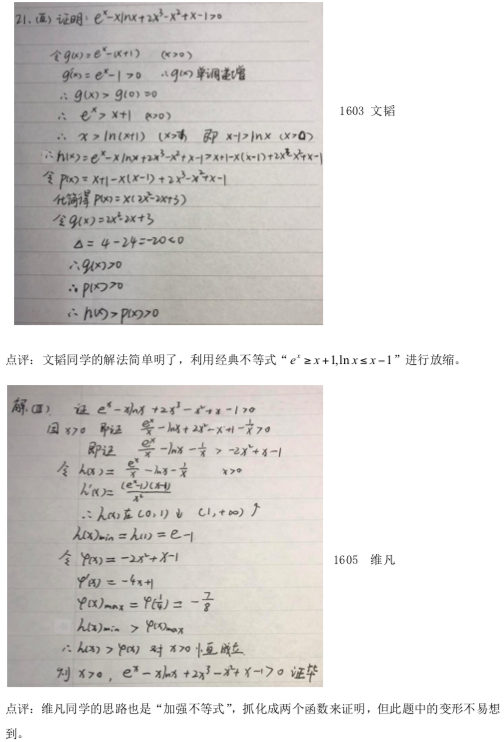 21. (Ⅲ) 证明: eˣ-xlnx+2x³-x²+x-1>0
令g(x)=eˣ-(x+1) (x>0)
g'(x)=eˣ-1>0 ∴g(x)单调递增
∴g(x)>g(0)=0
∴ eˣ>x+1 (x>0)
∴ x>ln(x+1) 即 x-1>lnx (x>0)
1603 文韬
∴h(x)=eˣ-xlnx+2x³-x²+x-1>x+1-x(x-1)+2x³-x²+x-1
令 p(x)=x+1-x(x-1)+2x³-x²+x-1
化简得 p(x)=x(2x²-2x+3)
令q(x)=2x²-2x+3
Δ=4-24=-20<0
∴q(x)>0
∴p(x)>0
∴ h(x)>p(x)>0
点评：文韬同学的解法简单明了，利用经典不等式“eˣ≥x+1,lnx≤x-1”进行放缩。
解.(Ⅲ) 证 eˣ-xlnx+2x³-x²+x-1>0
因x>0 即证 eˣ/x-lnx+2x²-x+1-1/x>0
即证 eˣ/x-lnx-1/x>-2x²+x-1
令 h(x)=eˣ/x-lnx-1/x x>0
h'(x)=(eˣ-1)(x-1)/x²
∴h(x)在(0,1)↓ (1,+∞)↑
h(x)min=h(1)=e-1
令 φ(x)=-2x²+x-1
φ'(x)=-4x+1
1605 维凡
φ(x)max=φ(1/4)=-7/8
h(x)min>φ(x)max
∴h(x)>φ(x) 对x>0恒成立
则x>0, eˣ-xlnx+2x³-x²+x-1>0 证毕
点评：维凡同学的思路也是“加强不等式”，抓化成两个函数来证明，但此题中的变形不易想
到。